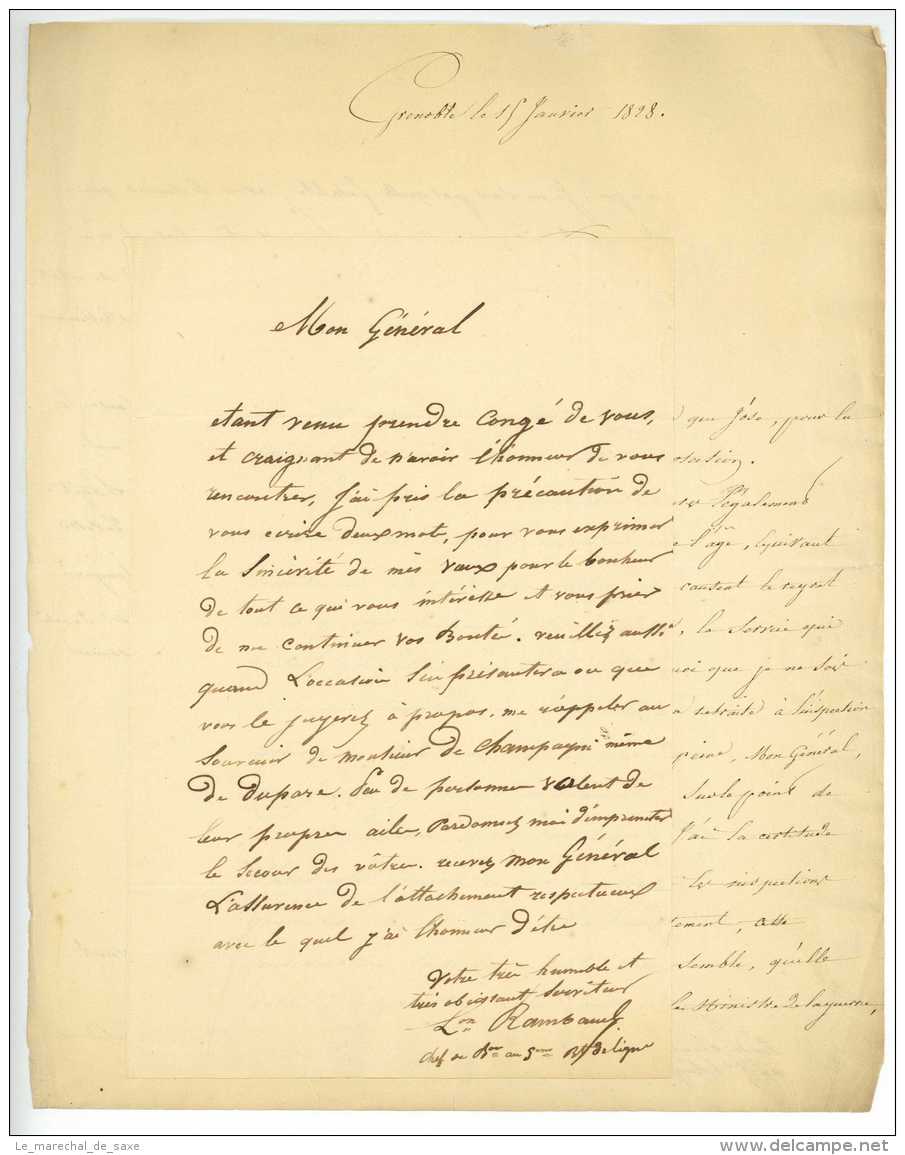 Grenoble le 15 Janvier 1828.
Mon Général
etant venu prendre Congé de vous,
et craignant de n'avoir l'honneur de vous
rencontrer, J'ai pris la précaution de
vous ecrire deux mot, pour vous exprimer
la Sincérité de mès vœux pour le bonheur
de tout ce qui vous intéresse et vous prier
de me continuer vos Bonté. veuillez aussi
quand L'occasion S'en présentera ou que
vous le jugerez à propos, me rappeler au
Souvenir de monsieur de Champagni même
de dupare. Peu de personne volent de
leur propre aile, Pardonnez moi d'emprunter
le Secour des vôtre. recevez mon Général
L'assurence de l'attachement respectueux
avec le quel j'ai l'honneur d'être
Votre très humble et
très obeissant Serviteur
Lon Rambaud
chef de Bon au 5me Rgt de ligne
que J'ose, pour la
également
l'âge,
causent le regret
le Service qui
quoi que je ne sois
retraite à l'inspection
Mon Général,
Sur le point de
J'ai la certitude
les inspections
cette
semble, qu'elle
le Ministre de la guerre,
Le_marechal_de_saxe
www.delcampe.net